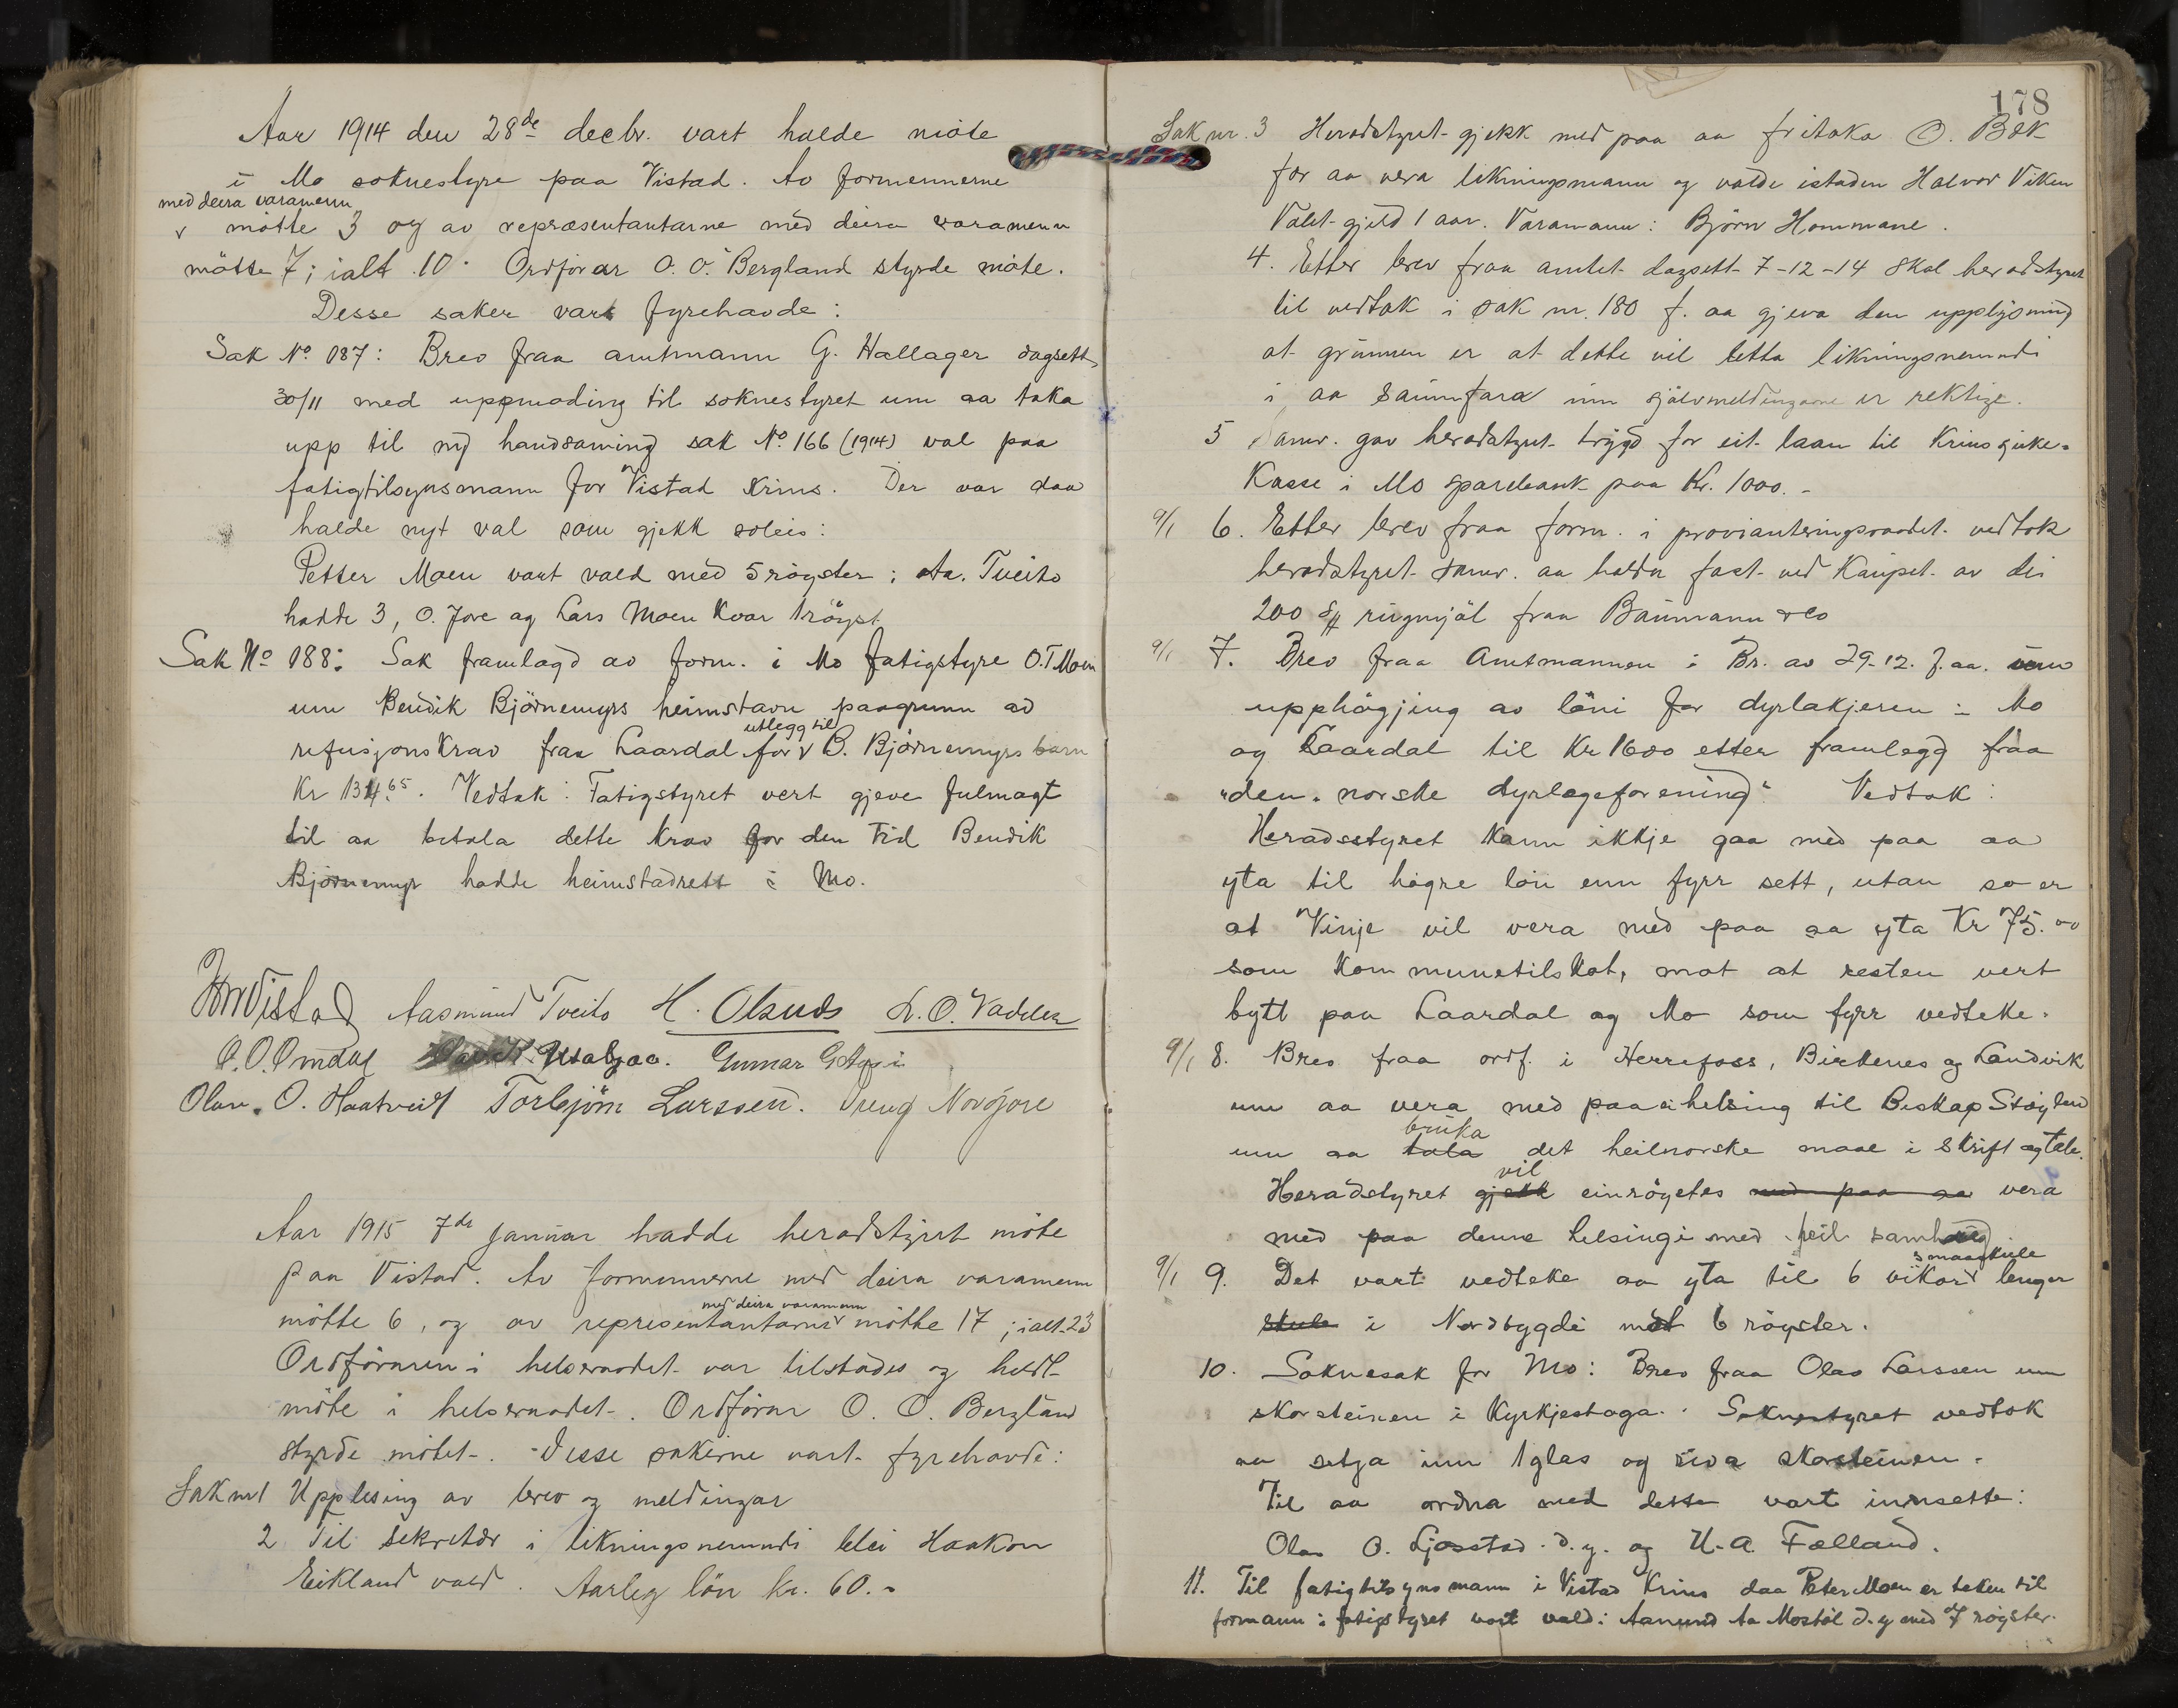 Aar 1914 den 28de decbr. vart halde möte
i Mo soknestyre paa Vistad. Av formennerne
med deira varamenn
v mötte 3 og av repræsentantarne med deira varamenn
mötte 7; ialt 10. Ordförar O. O. Bergland styrde möte.
Desse saker vart fyrehavde:
Sak No 187: Brev fraa amtmann G. Hallager dagsett
30/11 med uppmoding til soknestyret um aa taka
upp til ny handsaming sak No 166 (1914) val paa
fatigtilsynsmann for Vistad Krins. Der var daa
halde nyt val som gjekk soleis:
Petter Moen vart vald med 5 röyster; Aa. Tveito
hadde 3, O. Jore og Lars Moen kvar 1 röyst
Sak No 188: Sak framlagd av form. i Mo fatigstyre O. T Moen
um Bendik Björnemyrs heimstavn paagrunn av
utlegg til
refusjonskrav fraa Laardal for v B. Björnemyrs barn
Kr 134.65. Vedtak: Fatigstyret vert gjeve fulmagt
til aa betala dette krav for den tid Bendik
Björnemyr hadde heimstadrett i Mo.
Vistad Aasmund Tveito H. Olsnds L. O. Vadder
O. O. Omdal Utabjaa. Gunnar
Olav. O. Haatveit Torbjörn Larssen. Dreng Nordjore
Aar 1915 7de januar hadde heradstyret möte
paa Vistad. Av formennerne med deira varamenn
med deira varamenn
mötte 6, og av representantarne v mötte 17; ialt 23
Ordföraren i helseraadet var tilstades og heldt
möte i helseraadet. Ordförar O. O. Bergland
styrde mötet. Disse sakerne vart fyrehavde:
Sak nr 1 Upplesing av brev og meldingar
2 Til sekretær i likningsnemndi blei Haakon
Eikland vald. Aarleg lön kr. 60.-
178
Sak nr. 3 Heradstyret gjekk med paa aa fritaka O. Bøk
for aa vera likningsmann og valde istaden Halvor Viken
Valet gjeld 1 aar. Varamann: Björn Hommane.
4. Etter brev fraa amtet dagsett 7-12-14 skal heradstyret
til vedtak i sak nr. 180 f. aa gjeva den upplysning
at grunnen er at dette vil letta likningsnemndi
i aa saumfara um sjölvmeldingarne er rektige.
5 Samr. gav heradstyret trygd for eit laan til Krinssjuke-
Kasse i Mo sparebank paa Kr. 1000.-
9/1 6. Etter brev fraa form. i provianteringsraadet vedtok
heradstyret samr. aa halda fast ved Kaupet av dei
200 S# rugmjöl fraa Baumann & Co
9/1 7. Brev fraa Amtmannen i Br. av 29-12. f. aa. um
upphögjing av löni for dyrlækjeren i Mo
og Laardal til Kr 1600 etter framlegg fraa
"den norske dyrlægeforening" Vedtak:
Heradsstyret kann ikkje gaa med paa aa
yta til högre lön enn fyrr sett, utan so er
at Vinje vil vera med paa aa yta Kr 75.00
som kommunetilskot, mot at resten vert
bytt paa Laardal og Mo som fyrr vedteke.
9/1 8. Brev fraa ordf. i Herrefoss, Birkenes og Landvik
um aa vera med paa ei helsing til Biskop Stöylen
bruka
um aa tala det heilnorske maal i skrift og tale.
vil
Heradstyret gjekk einröystes med paa aa vera
med paa denne helsingi med heil samhug
smaaskule
9/1 9. Det vart vedteke aa yta til 6 vikor v lenger
skule i Nordbygdi mot 6 röyster.
10. Soknesak for Mo: Brev fraa Olav Larssen um
skorsteinen i Kyrkjestoga. Soknestyret vedtok
aa setja inn 1 glas og riva skorsteinen.
Til aa ordna med dette vart innsette:
Olav O. Ljosstad d. y. og H. A. Fælland.
11. Til fatigtilsynsmann i Vistad Krins daa Peter Moen er teken til
formann i fatigstyret vart vald: Aanund Aa Mostöl d. y med 7 röyster.